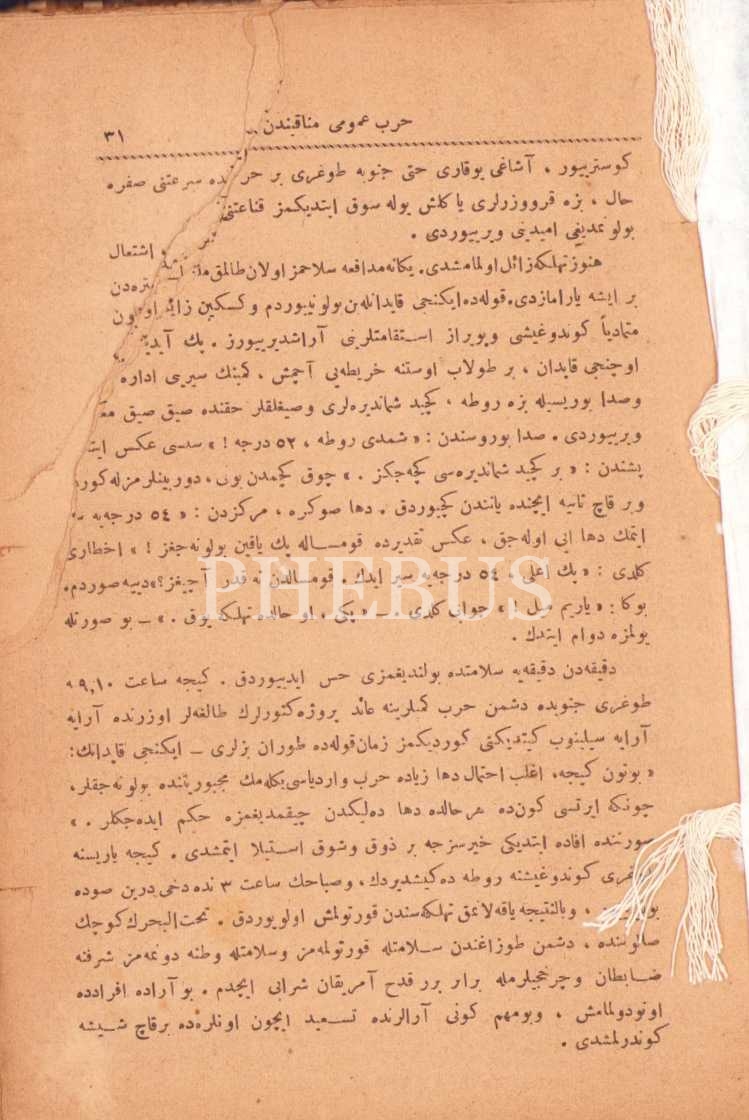 حرب عمومی مناقبندن
٣١
كوستریيور . آشاغی یوقاری حتی جنوبه طوغری بر سرعتنی صفره
حال ، بزه قرووزرلری یا كلش یوله سوق ایتدیكمز قناعتنی
بولونمدیغی امیدینی ویریيوردی .
اشتعال
هنوز تهلكه زائل اولمامشدی. یكانه مدافعه سلاحمز اولان طالمق
بر ایشه یارامازدی. قوله ده ایكنجی قاپدانله بن بولونیوردم و كسكین زایل
متمادیاً كوندوغیشی وپویراز استقامتلرینی آراشدیریيورز . پك
اوچنجی قاپدان ، بر طولاب اوستنه خریطه یی آچمش ، كمینك سیرینی اداره
وصدا بوریسیله بزه روطه ، كچید شماندیره لری وصیغلقلر حقنده صیق صیق
ویریيوردی . صدا بوروسندن : « شمدی روطه ، ٥٢ درجه ! » سسی عكس
پشندن : « بر كچید شماندیره سی كچه جكز . » چوق كچمدن بونی ، دوربینلرمزله
و بر قاچ ثانیه ایچنده یانندن كچیوردق . دها صوكره ، مركزدن : « ٥٤ درجه یه
ایتمك دها ایی اوله جق ، عكس تقدیرده قومساله پك یاقین بولونه جغز ! » اخطاری
كلدی : « پك اعلی ، ٥٤ درجه یه سیر ایدك . قومسالدن نه قدر آچیغز ؟ » دییه صوردم.
بوكا : « یاریم میل ! » جوابی كلدی . ــ « پكی ، او حالده تهلكه یوق . » ــ بو صورتله
یولمزه دوام ایتدك .
دقیقه دن دقیقه یه سلامتده بولندیغمزی حس ایدیيوردق . كیجه ساعت ٩,١٠ ه
طوغری جنوبده دشمن حرب كمیلرینه عائد پروژه كتورلرك طالغه لر اوزرنده آرایه
آرایه سیلینوب كیتدیكنی كوردیكمز زمان قوله ده طوران بزلری ــ ایكنجی قاپدانك:
« بوتون كیجه ، اغلب احتمال دها زیاده حرب واردیاسی بكله مك مجبوریتنده بولونه جقلر،
چونكه ایرتسی كون ده هر حالده دها ده لیكدن چیقمدیغمزه حكم ایده جكلر . »
صورتنده افاده ایتدیكی خیرسزجه بر ذوق وشوق استیلا ایتمشدی . كیجه یاریسنه
كوندوغیشنه روطه ده كیشدیردك ، وصباحك ساعت ٣ نده دخی درین صوده
، وبالنتیجه یاقه لانمق تهلكه سندن قورتولمش اولویوردق . تحت البحرك كوچك
صالوننده ، دشمن طوزاغندن سلامتله قورتولمه مز وسلامتله وطنه دونمه مز شرفنه
ضابطان وچرخجیلرمله برابر برر قدح آمریقان شرابی ایچدم . بو آراده افراد ده
اونودولمامش ، وبو مهم كونی آرالرنده تسعید ایچون اونلره ده بر قاچ شیشه
كوندرلمشدی .
PHEBUS